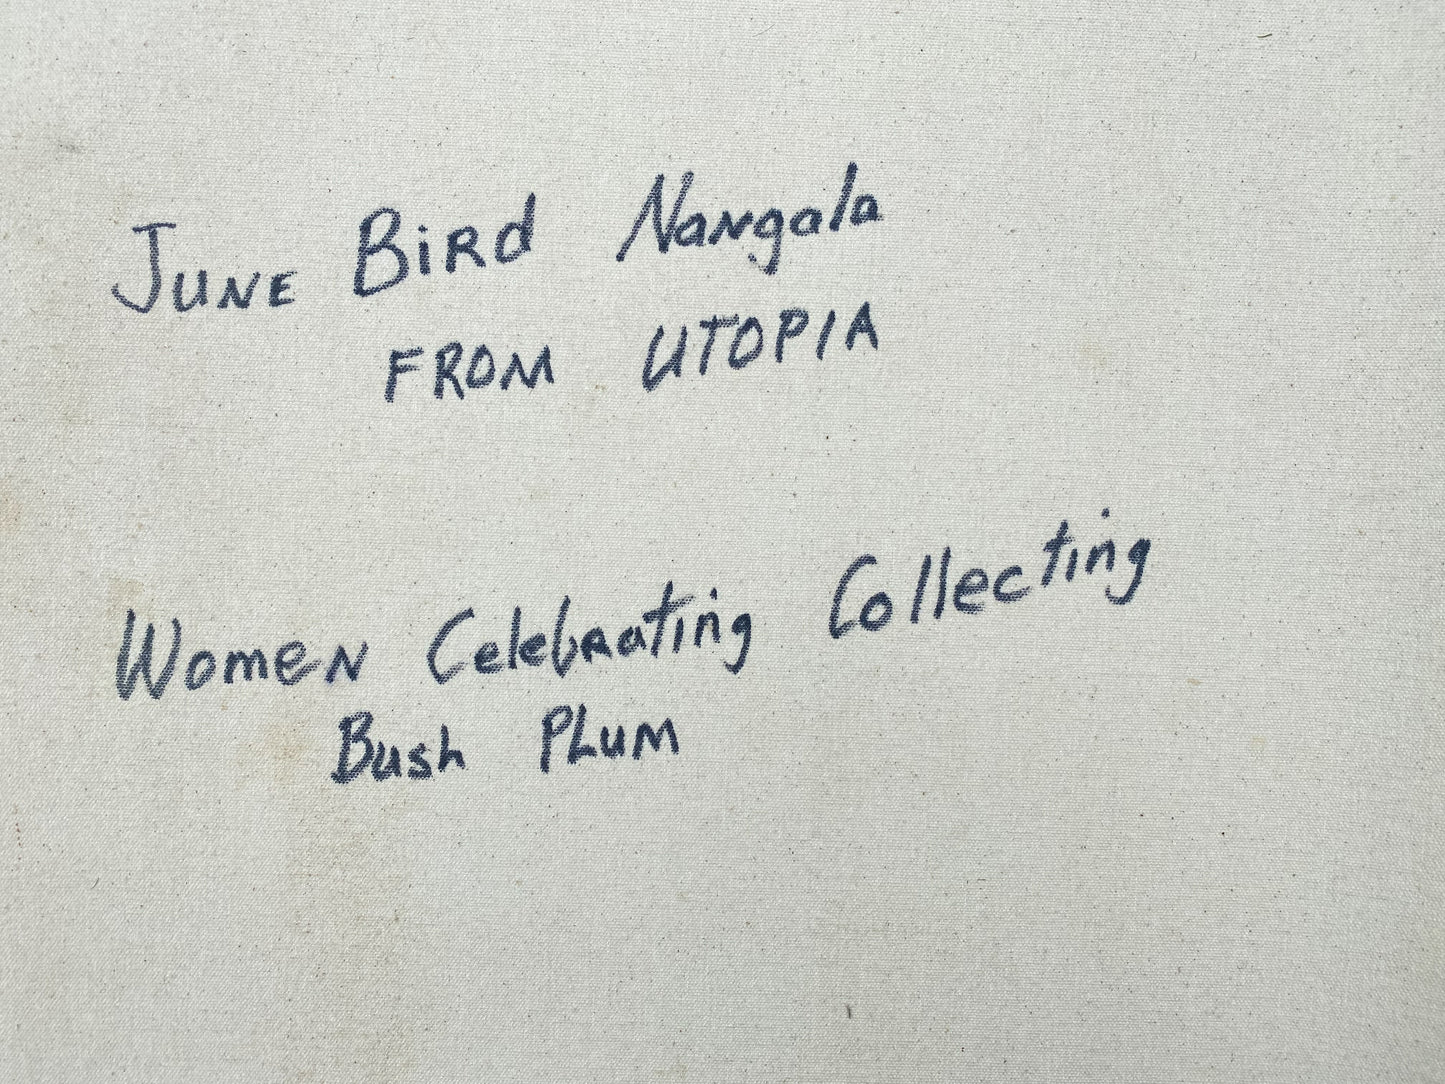 June Bird Nangala
FROM UTOPIA
Women Celebrating Collecting
Bush Plum